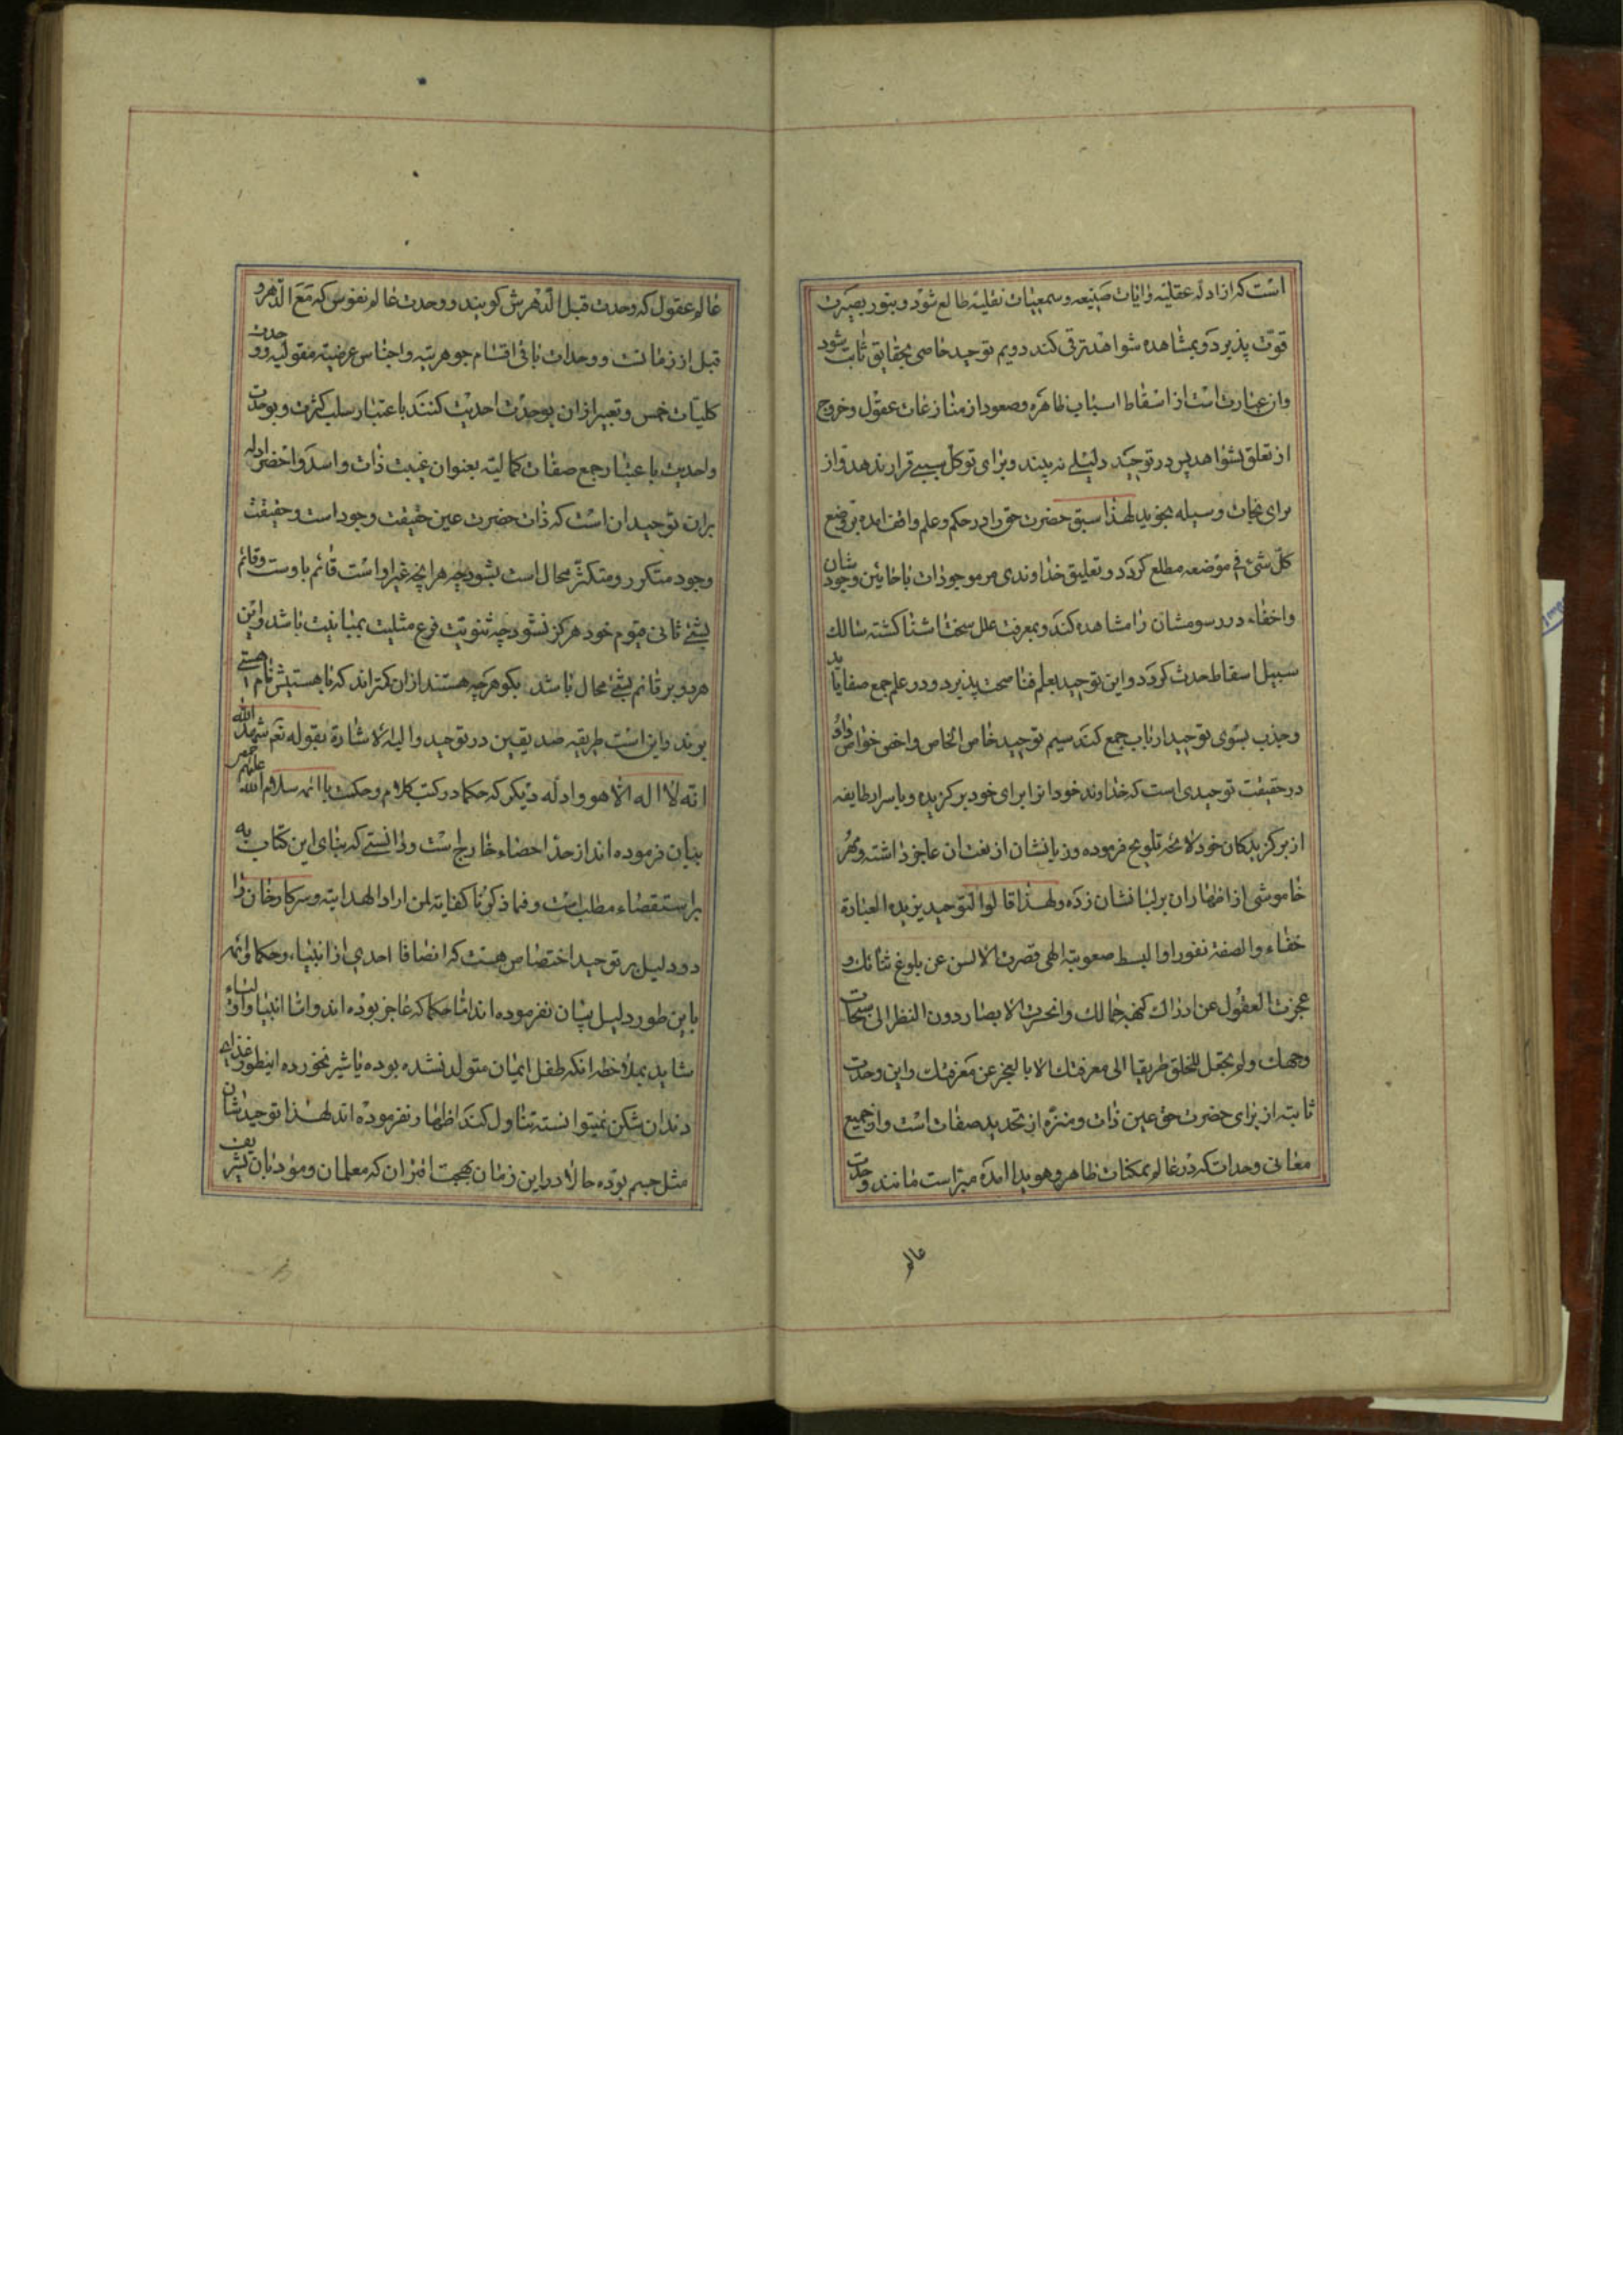 است که از ادله عقلیه و ایات صنیعه و سمعیات نقلیه طالع شود و بنور بصیرت
قوت پذیرد و بمشاهده شواهد ترقی کند دویم توحید خاصی بحقایق ثابت شود
وان عبارت است از اسقاط اسباب ظاهره و صعود از منازعات عقول و خروج
از تعلق بشواهد پس در توحید دلیلی نه بیند و برای توکل سببی قرار ندهد و از
برای نجات وسیله نجوید لهذا سبق حضرت حق را در حکم و علم واقف امده بر وضع
کل شیئ فی موضعه مطلع کردد و تعلیق خداوندی مر موجودات باحایین وجودشان
واخفاء در رسومشان را مشاهده کند و بمعرفت علل سخت اشنا کشته سالک
سبیل اسقاط حدث کردد و این توحید بعلم فنا صحت پذیرد و در علم جمع صفا یابد
و جذب بسوی توحید ارباب جمع کند سیم توحید خاص الخاص و اخص خواص
در حقیقت توحیدی است که خداوند خود انرا برای خود بر کزیده و باسرار طایفه
از بر کزیدکان خود لائحه تلویح فرموده و زبانشان از نعت ان عاجز داشته و مهر
خاموشی از اظهار ان بر لبانشان زده و لهذا قالوا التوحید یزیده العبارة
خفاء والصفة نفورا والبسط صعوبة الهی قصرت الالسن عن بلوغ ثنائک و
عجزت العقول عن ادراک کنه جمالک وانحسرت الابصار دون النظر الی سبحات
وجهک ولم تجعل للخلق طریقا الی معرفتک الا بالعجز عن معرفتک و این وحدت
ثابته از برای حضرت حق عین ذات و منزه از تحدید صفات است و از جمیع
معانی وحدات که در عالم ممکنات ظاهر و هویدا امده مبراست مانند وحدت
عالم
عالم عقول که وحدت قبل الدهرش کویند و وحدت عالم نفوس که مع الدهر و
قبل از زمانست و وحدات باقی اقسام جوهریه و اجناس عرضیه مقولیه و وحدت
کلیات خمس و تعبیر از ان بوحدت احدیت کنند باعتبار سلب کثرت و بوحدت
واحدیت باعتبار جمع صفات کمالیه بعنوان غیبت ذات و اسد و اخصر ادله
بران توحید ان است که ذات حضرت عین حقیقت وجود است و حقیقت
وجود متکرر و متکثر محال است بشود چه هر انچه غیر او است قائم باوست و قائم
بشیئ ثانی قیوم خود هرکز نشود چه ثنویت فرع مثلیت بمباینیت باشد و این
هر دو بر قائم بشیئ محال باشد بکو هر چه هستند از ان کمترند که با هستیش نام هستی
برند و این است طریقه صدیقین در توحید والیه الاشارة بقوله تعم شهد الله
انه لا اله الا هو و ادله دیکر که حکما در کتب کلام و حکمت با ائمه سلام الله علیهم
بیان فرموده اند از حد احصاء خارج است و دانستی که بنای این کتاب نه
بر استقصاء مطلب است و فیما ذکرنا کفایة لمن اراد الهدایة و سرکار خان را
دو دلیل بر توحید اختصاص هست که انصافا احدی از انبیاء و حکما و ائمه
باین طور دلیل بیان نفرموده اند اما حکما که عاجز بوده اند و اما انبیا و اولیاء
شاید بملاحظه انکه طفل ایمان متولد نشده بوده یا شیر نخورده اینطور غذای
دندان شکن نمیتوانسته تناول کند اظهار نفرموده اند لهذا توحیدشان
مثل جسم بوده حالا در این زمان بهجت اقتران که معلمان و مؤدبان